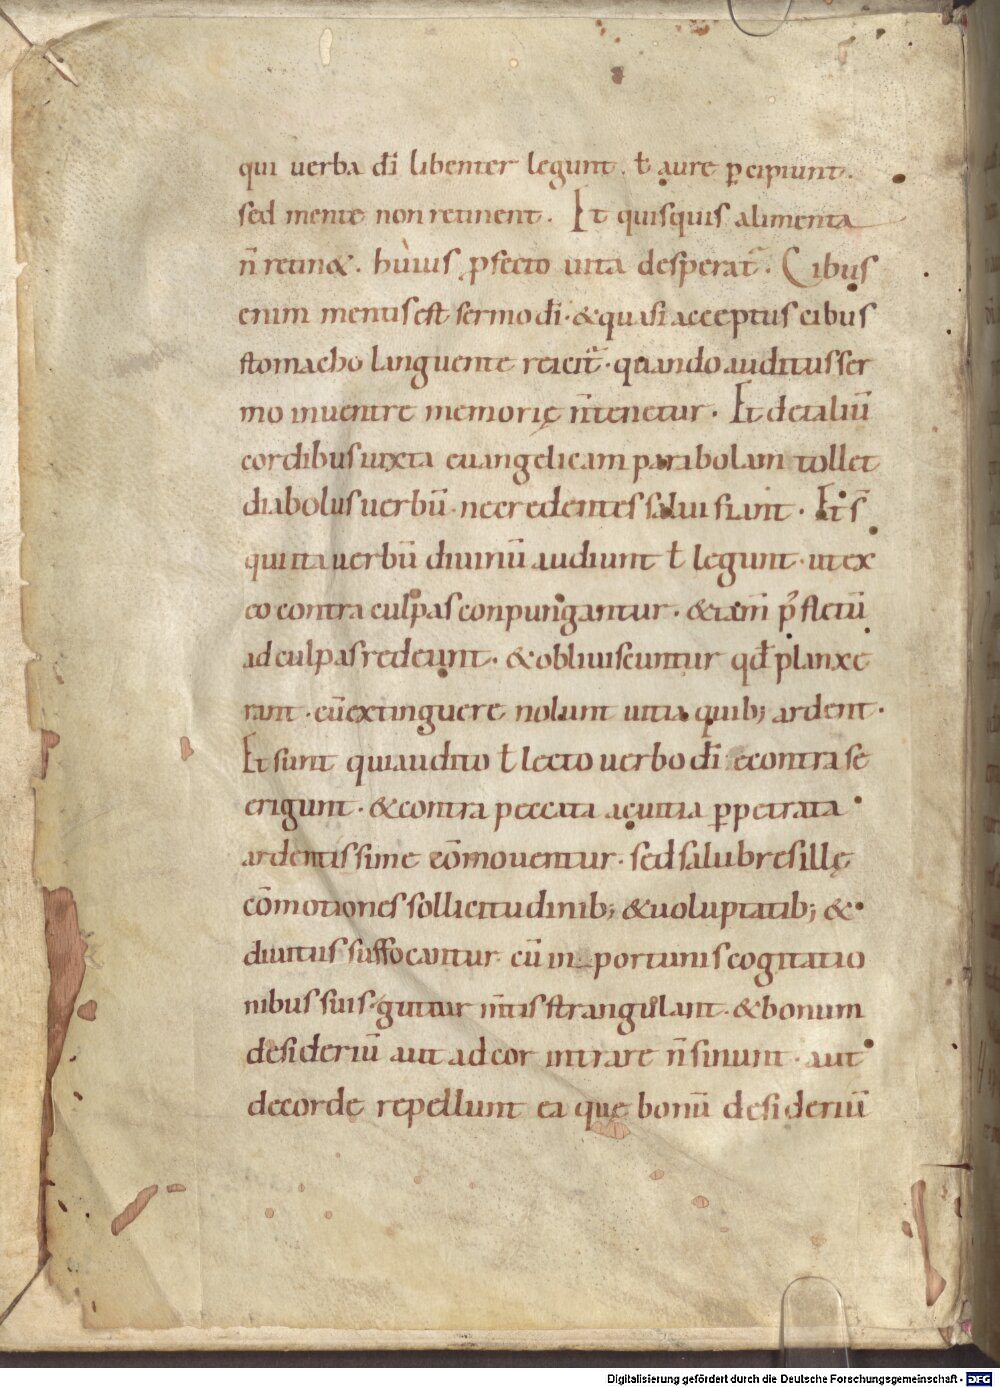 qui uerba dī libenter legunt . ł aure ꝑcipiunt .
sed mente non retinent . Et quisquis alimenta
n̄ retin& . huius ꝓfecto uita desperat̄ . Cibus
enim mentis est sermo dī · & quasi acceptus cibus
stomacho languente reicit̄ · quando auditus ser
mo in uentre memorię n̄ tenetur . Et de taliū
cordibus iuxta euangelicam parabolam tollet
diabolus uerbū · ne credentes salui fiant · Et s̄
qui ita uerbū diuinū audiunt ł legunt · ut ex
eo contra culpas conpungantur . & tam̄ p̄ fletū
ad culpas redeunt . & obliuiscuntur qd̄ planxe
rant · cū extinguere nolunt uitia quib; ardent .
Et sunt qui audito ł lecto uerbo dī econtra se
erigunt . & contra peccata ac uitia ꝑpetrata
ardentissime cōmouentur . sed salubres illę
cōmotiones sollicitudinib; & uoluptatib; &
diuitiis suffocantur cū inportunis cogitatio
nibus suis · guttur m̄tis strangulant . & bonum
desideriū aut ad cor intrare n̄ sinunt · aut
de corde repellunt ea que bonū desideriū
Digitalisierung gefördert durch die Deutsche Forschungsgemeinschaft · DFG